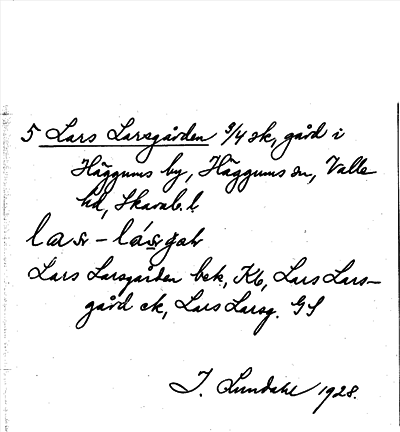 5 Lars Larsgården 3/4 sk, gård i
Häggums by, Häggums sn, Valle
hd, Skarab. l.
Lars Larsgården bek., Kb, Lars Lars-
gård ek, Lars Larsg. GS
J. Lundahl 1928.